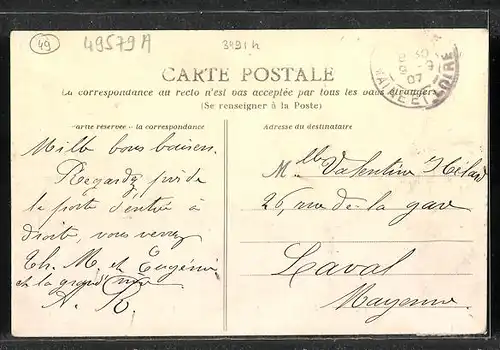 49
49579A
3491 h
30
-9
07
MAINE ET LOIRE
CARTE POSTALE
La correspondance au recto n'est pas acceptée par tous les pays étrangers
(Se renseigner à la Poste)
Partie réservée à la correspondance
Adresse du destinataire
Mille bons baisers.
Regardez près de
la porte d'entrée à
droite, vous verrez
Th. M. et Eugénie
et la grand'mère
A. B.
Mlle Valentine
26, rue de la gare
Laval
Mayenne